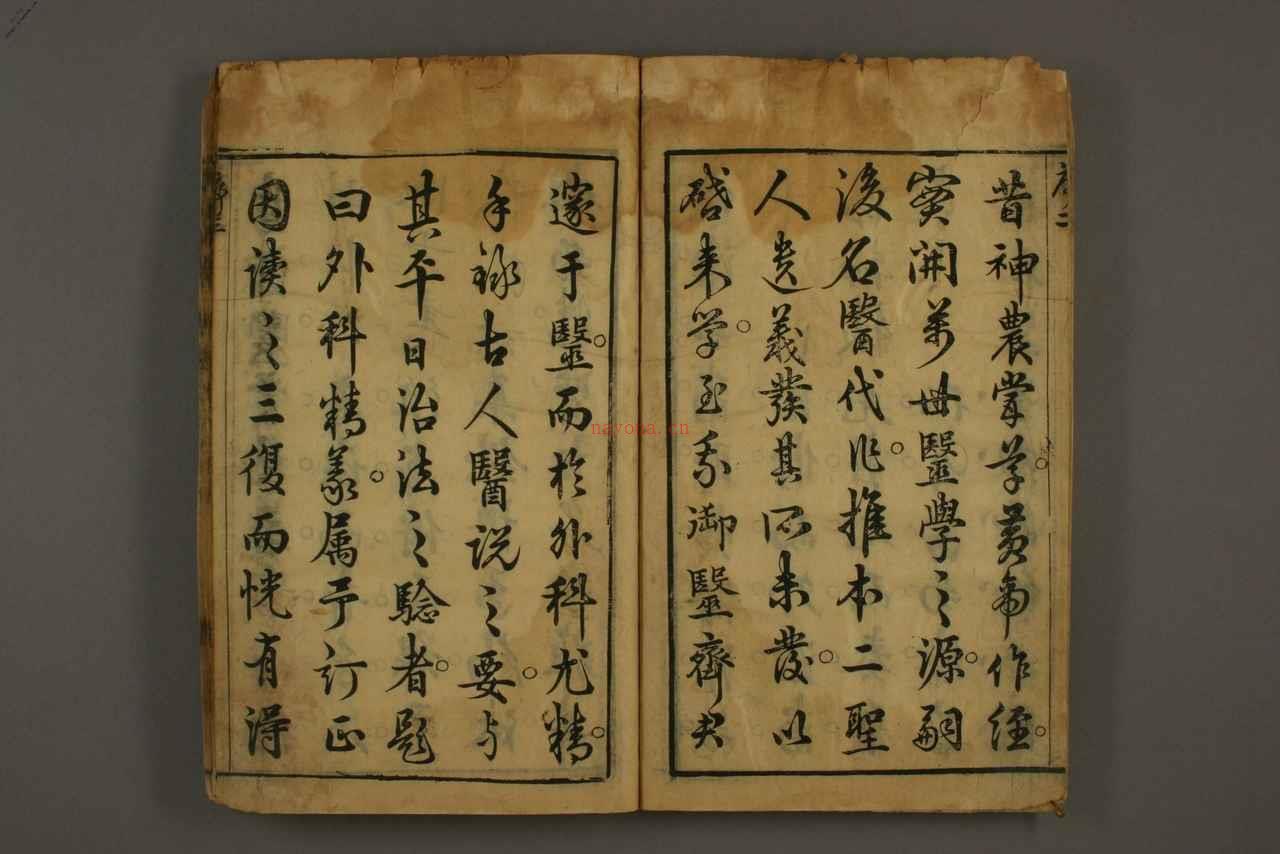 昔神農掌學。黃帝作經。
實開萬世毉學之源。嗣
後名醫代作。推本二聖
人遺義發其所未發。以
啓来学。至我御毉齊大
邃于毉。而於外科尤精。
手錄古人醫説之要。与
其平日治法之驗者。題
曰外科精義。属予訂正
因读之三復而恍有得
序二
nayona.cn